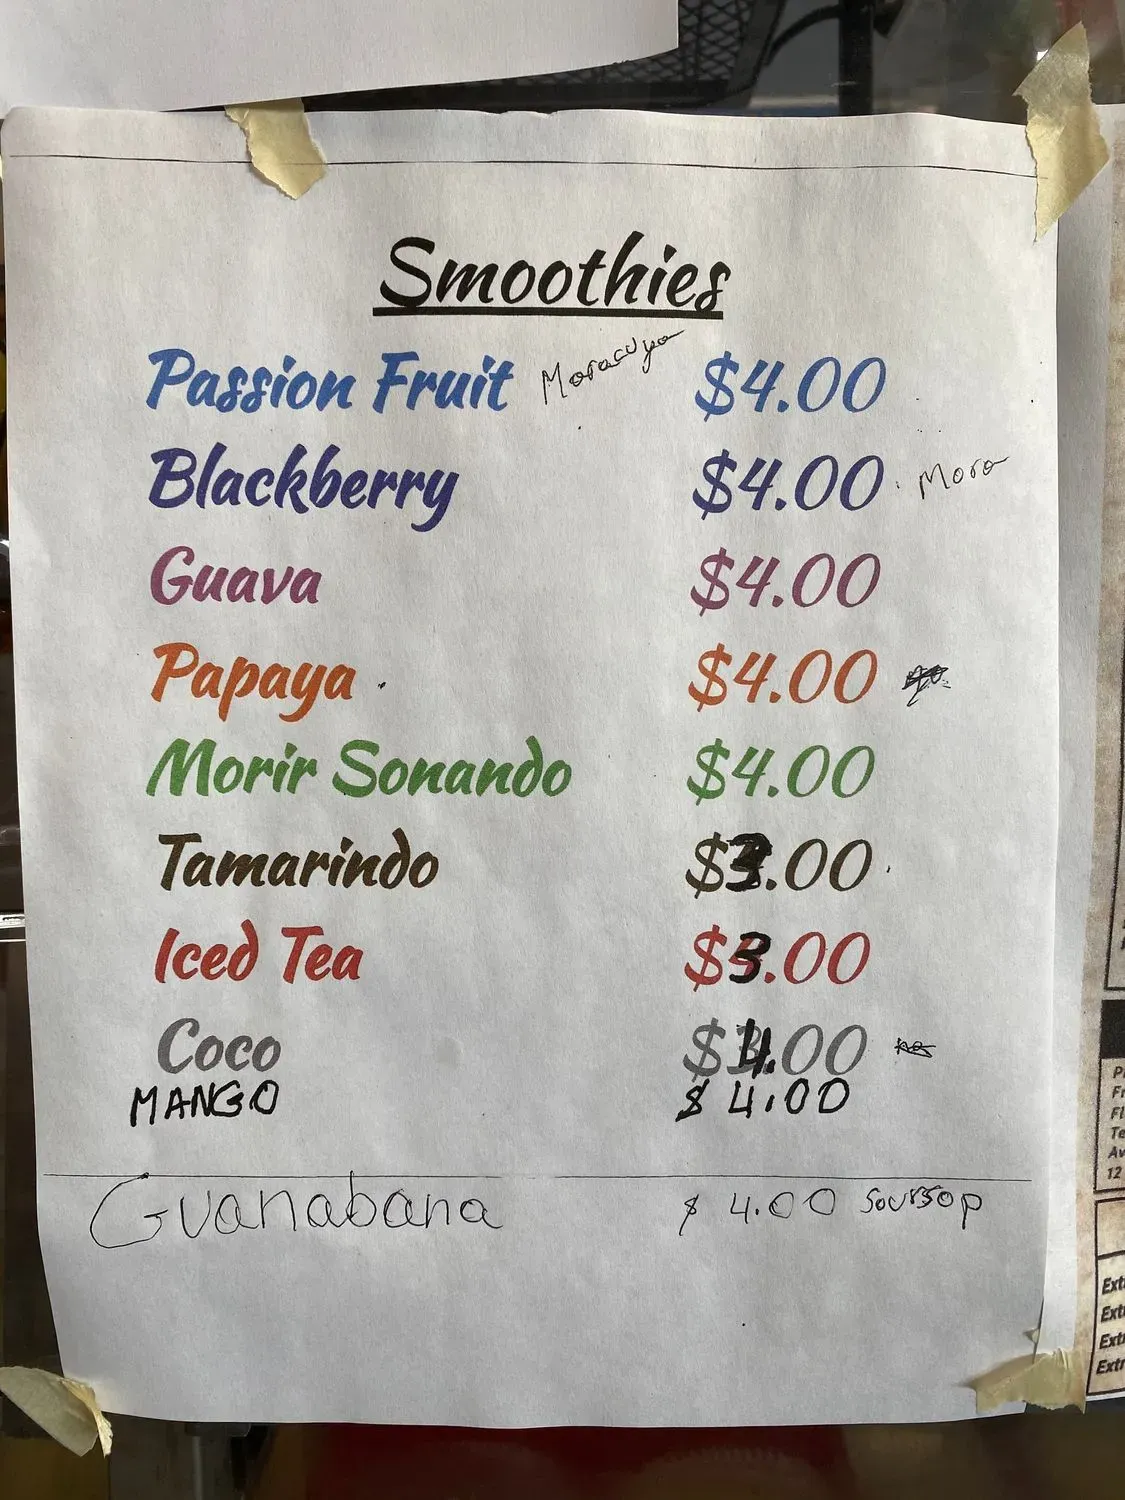 Smoothies
Passion Fruit Moracuya $4.00
Blackberry $4.00 Mora
Guava $4.00
Papaya $4.00
Morir Sonando $4.00
Tamarindo $3.00
Iced Tea $3.00
Coco $4.00
MANGO $4.00
Guanabana $4.00 Soursop
Te
12
Ext
Ext
Ext
Extr